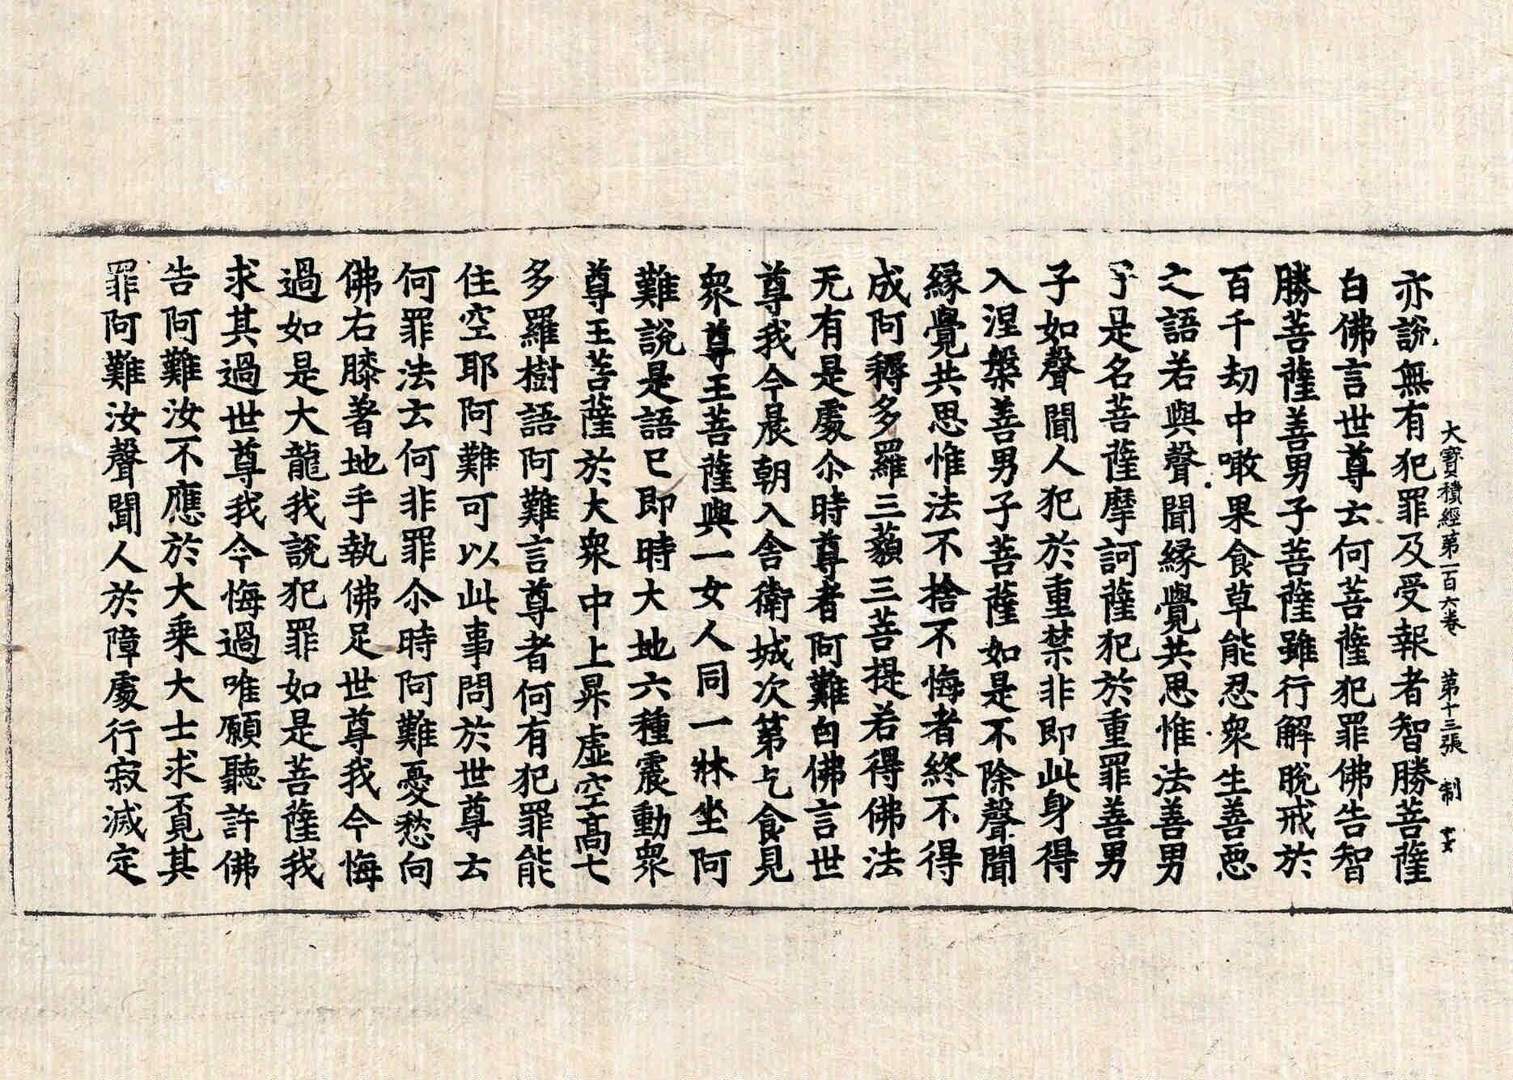 大寶積經第一百六卷　第十三張　制
亦說無有犯罪及受報者智勝菩薩
白佛言世尊云何菩薩犯罪佛告智
勝菩薩善男子菩薩雖行解脫戒於
百千劫中噉果食草能忍衆生善惡
之語若與聲聞緣覺共思惟法善男
子是名菩薩摩訶薩犯於重罪善男
子如聲聞人犯於重禁非即此身得
入涅槃善男子菩薩如是不除聲聞
緣覺共思惟法不捨不悔者終不得
成阿耨多羅三藐三菩提若得佛法
无有是處尒時尊者阿難白佛言世
尊我今晨朝入舍衛城次第乞食見
衆尊王菩薩與一女人同一牀坐阿
難說是語已即時大地六種震動衆
尊王菩薩於大衆中上昇虛空高七
多羅樹語阿難言尊者何有犯罪能
住空耶阿難可以此事問於世尊云
何罪法云何非罪尒時阿難憂愁向
佛右膝著地手執佛足世尊我今悔
過如是大龍我說犯罪如是菩薩我
求其過世尊我今悔過唯願聽許佛
告阿難汝不應於大乘大士求覓其
罪阿難汝聲聞人於障處行寂滅定